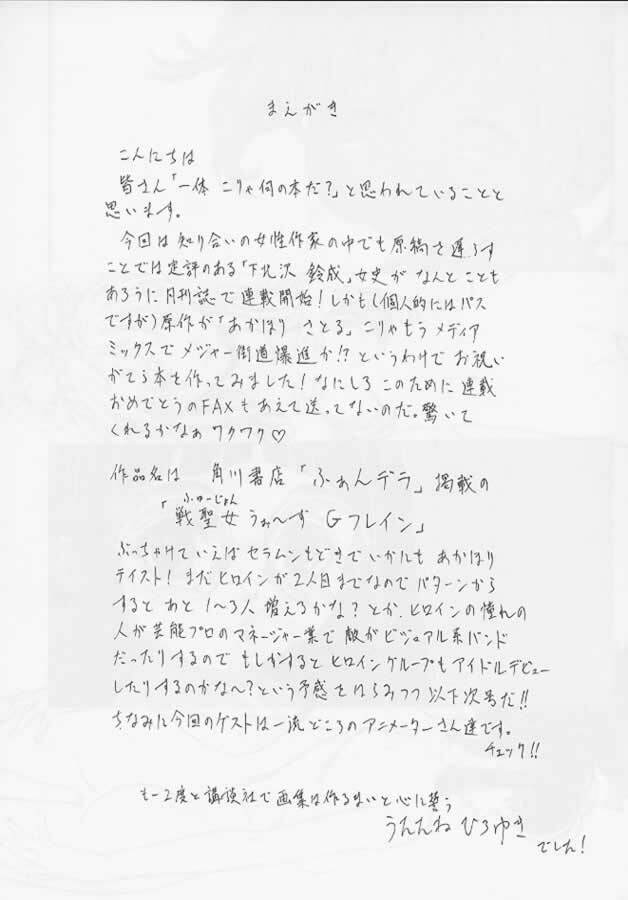 まえがき
こんにちは
皆さん「一体 こりゃ何の本だ?」と思われていることと
思います。
今回は知り合いの女性作家の中でも原稿を遅らす
ことでは定評のある「下北沢 鈴成」女史が なんと こともあ
あろうに 月刊誌で連載開始!しかも(個人的にはパス
ですが)原作が「あかほり さとる」こりゃもう メディア
ミックスで メジャー街道爆進か!?というわけで お祝い
がてら本を作ってみました!なにしろ このために 連載
おめでとうのFAXもあえて送ってないのだ。驚いて
くれるかなぁ ワクワク♡
作品名は 角川書店「ふぁんデラ」掲載の
ふゅーじょん
「戦聖女 うぉ〜ず Gフレイン」
ぶっちゃけていえばセラムンもどきでいかにも あかほり
テイスト! まだヒロインが2人目までなので パターンから
すると あと 1〜3人 増えるかな? とか、ヒロインの憧れの
人が芸能プロのマネージャー業で 敵がビジュアル系バンド
だったりするので もしかすると ヒロイングループもアイドルデビュー
したりするのかな〜?という予感をはらみつつ 以下次号だ!!
ちなみに今回のゲストは一流どころのアニメーターさん達です。
チェック!!
もー2度と講談社で画集は作るまいと心に誓う
うたたね ひろゆき
でした!